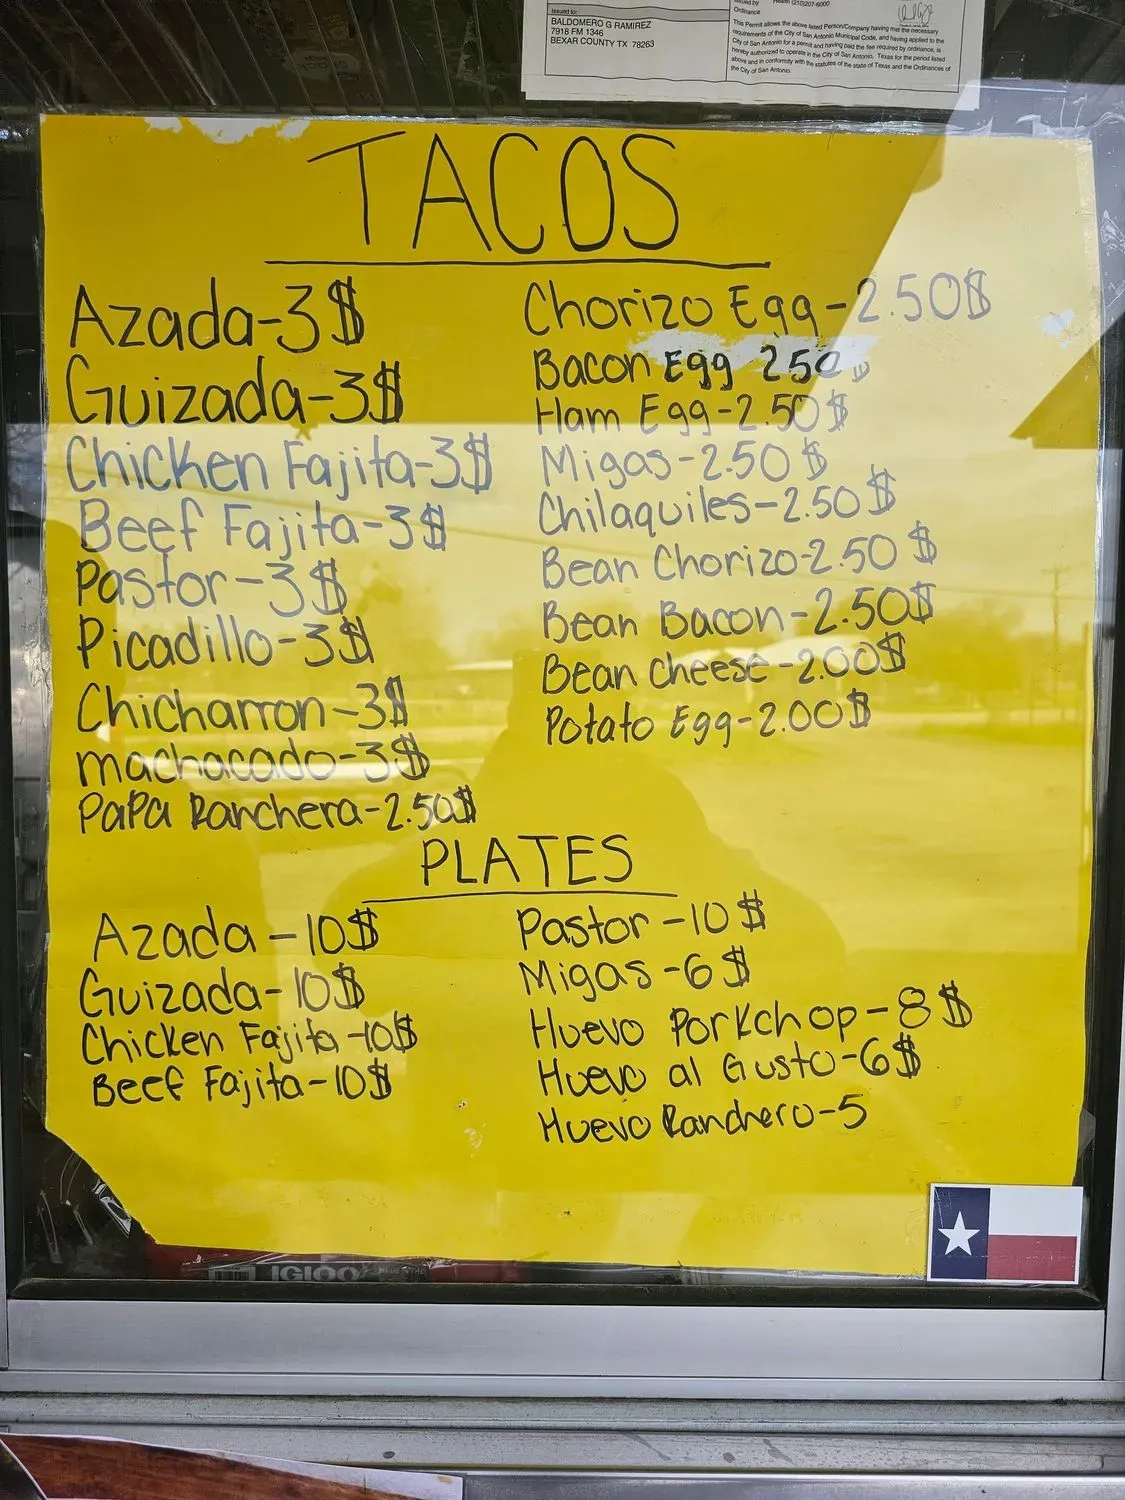 Issued to:
BALDOMERO G RAMIREZ
7918 FM 1346
BEXAR COUNTY TX 78263
Issued by
Health (210)207-6000
Ordinance
This Permit allows the above listed Person/Company having met the necessary
requirements of the City of San Antonio Municipal Code, and having applied to the
City of San Antonio for a permit and having paid the fee required by ordinance, is
hereby authorized to operate in the City of San Antonio, Texas for the period listed
above and in conformity with the statutes of the state of Texas and the Ordinances of
the City of San Antonio.
TACOS
Azada-3$
Guizada-3$
Chicken Fajita-3$
Beef Fajita-3$
Pastor-3$
Picadillo-3$
Chicharron-3$
machacado-3$
PaPa Ranchera-2.50$
Chorizo Egg-2.50$
Bacon Egg 250
Ham Egg-2.50$
Migas-2.50$
Chilaquiles-2.50$
Bean Chorizo-2.50$
Bean Bacon-2.50$
Bean cheese-2.00$
Potato Egg-2.00$
PLATES
Azada-10$
Guizada-10$
Chicken Fajita-10$
Beef Fajita-10$
Pastor-10$
Migas-6$
Huevo Porkchop-8$
Huevo al Gusto-6$
Huevo Ranchero-5
IGLOO